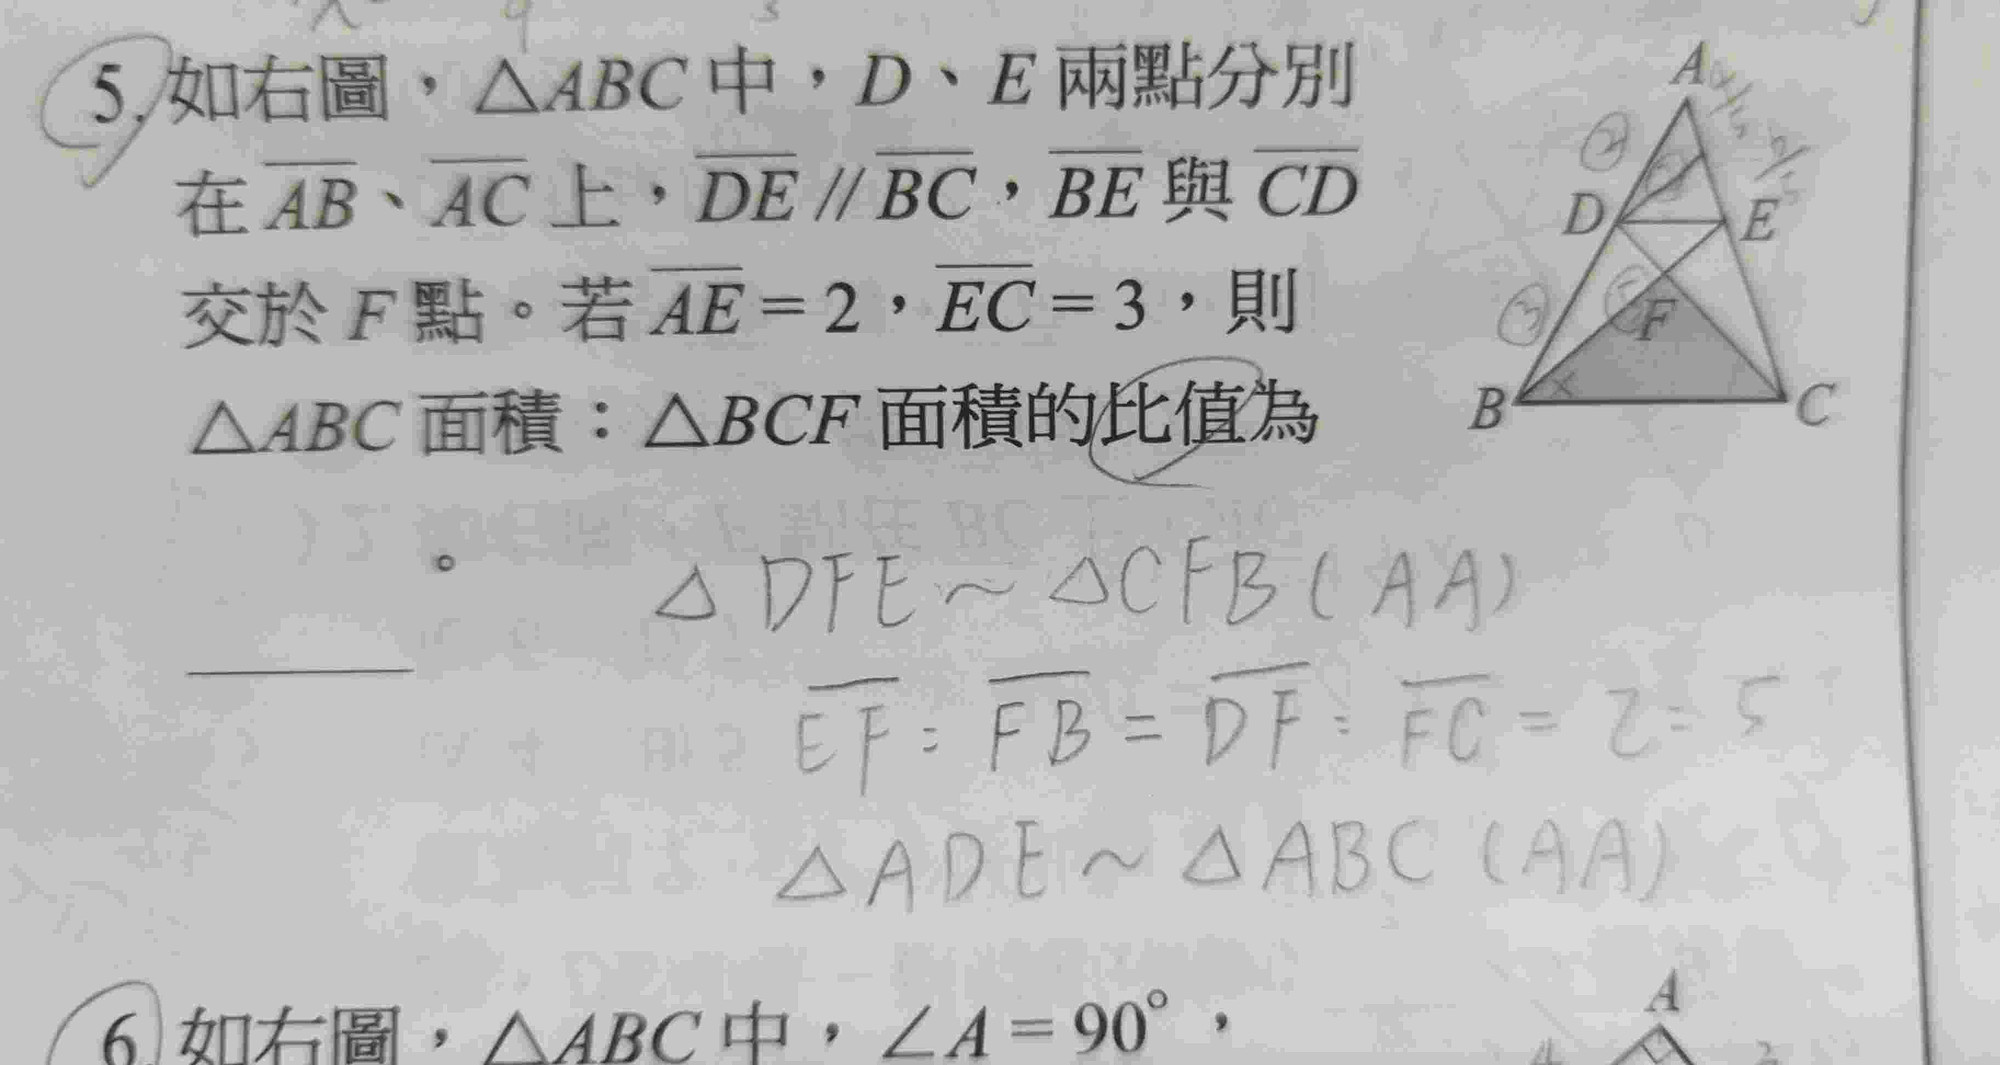 5. 如右圖，△ABC 中，D、E 兩點分別
在 AB、AC 上，DE // BC，BE 與 CD
交於 F 點。若 AE = 2，EC = 3，則
△ABC 面積：△BCF 面積的比值為
。
△DFE ~ △CFB (AA)
EF : FB = DF : FC = 2 : 5
△ADE ~ △ABC (AA)
A
2
D
E
3
F
x
B
C
6. 如右圖，△ABC 中，∠A = 90°，
A
4
3